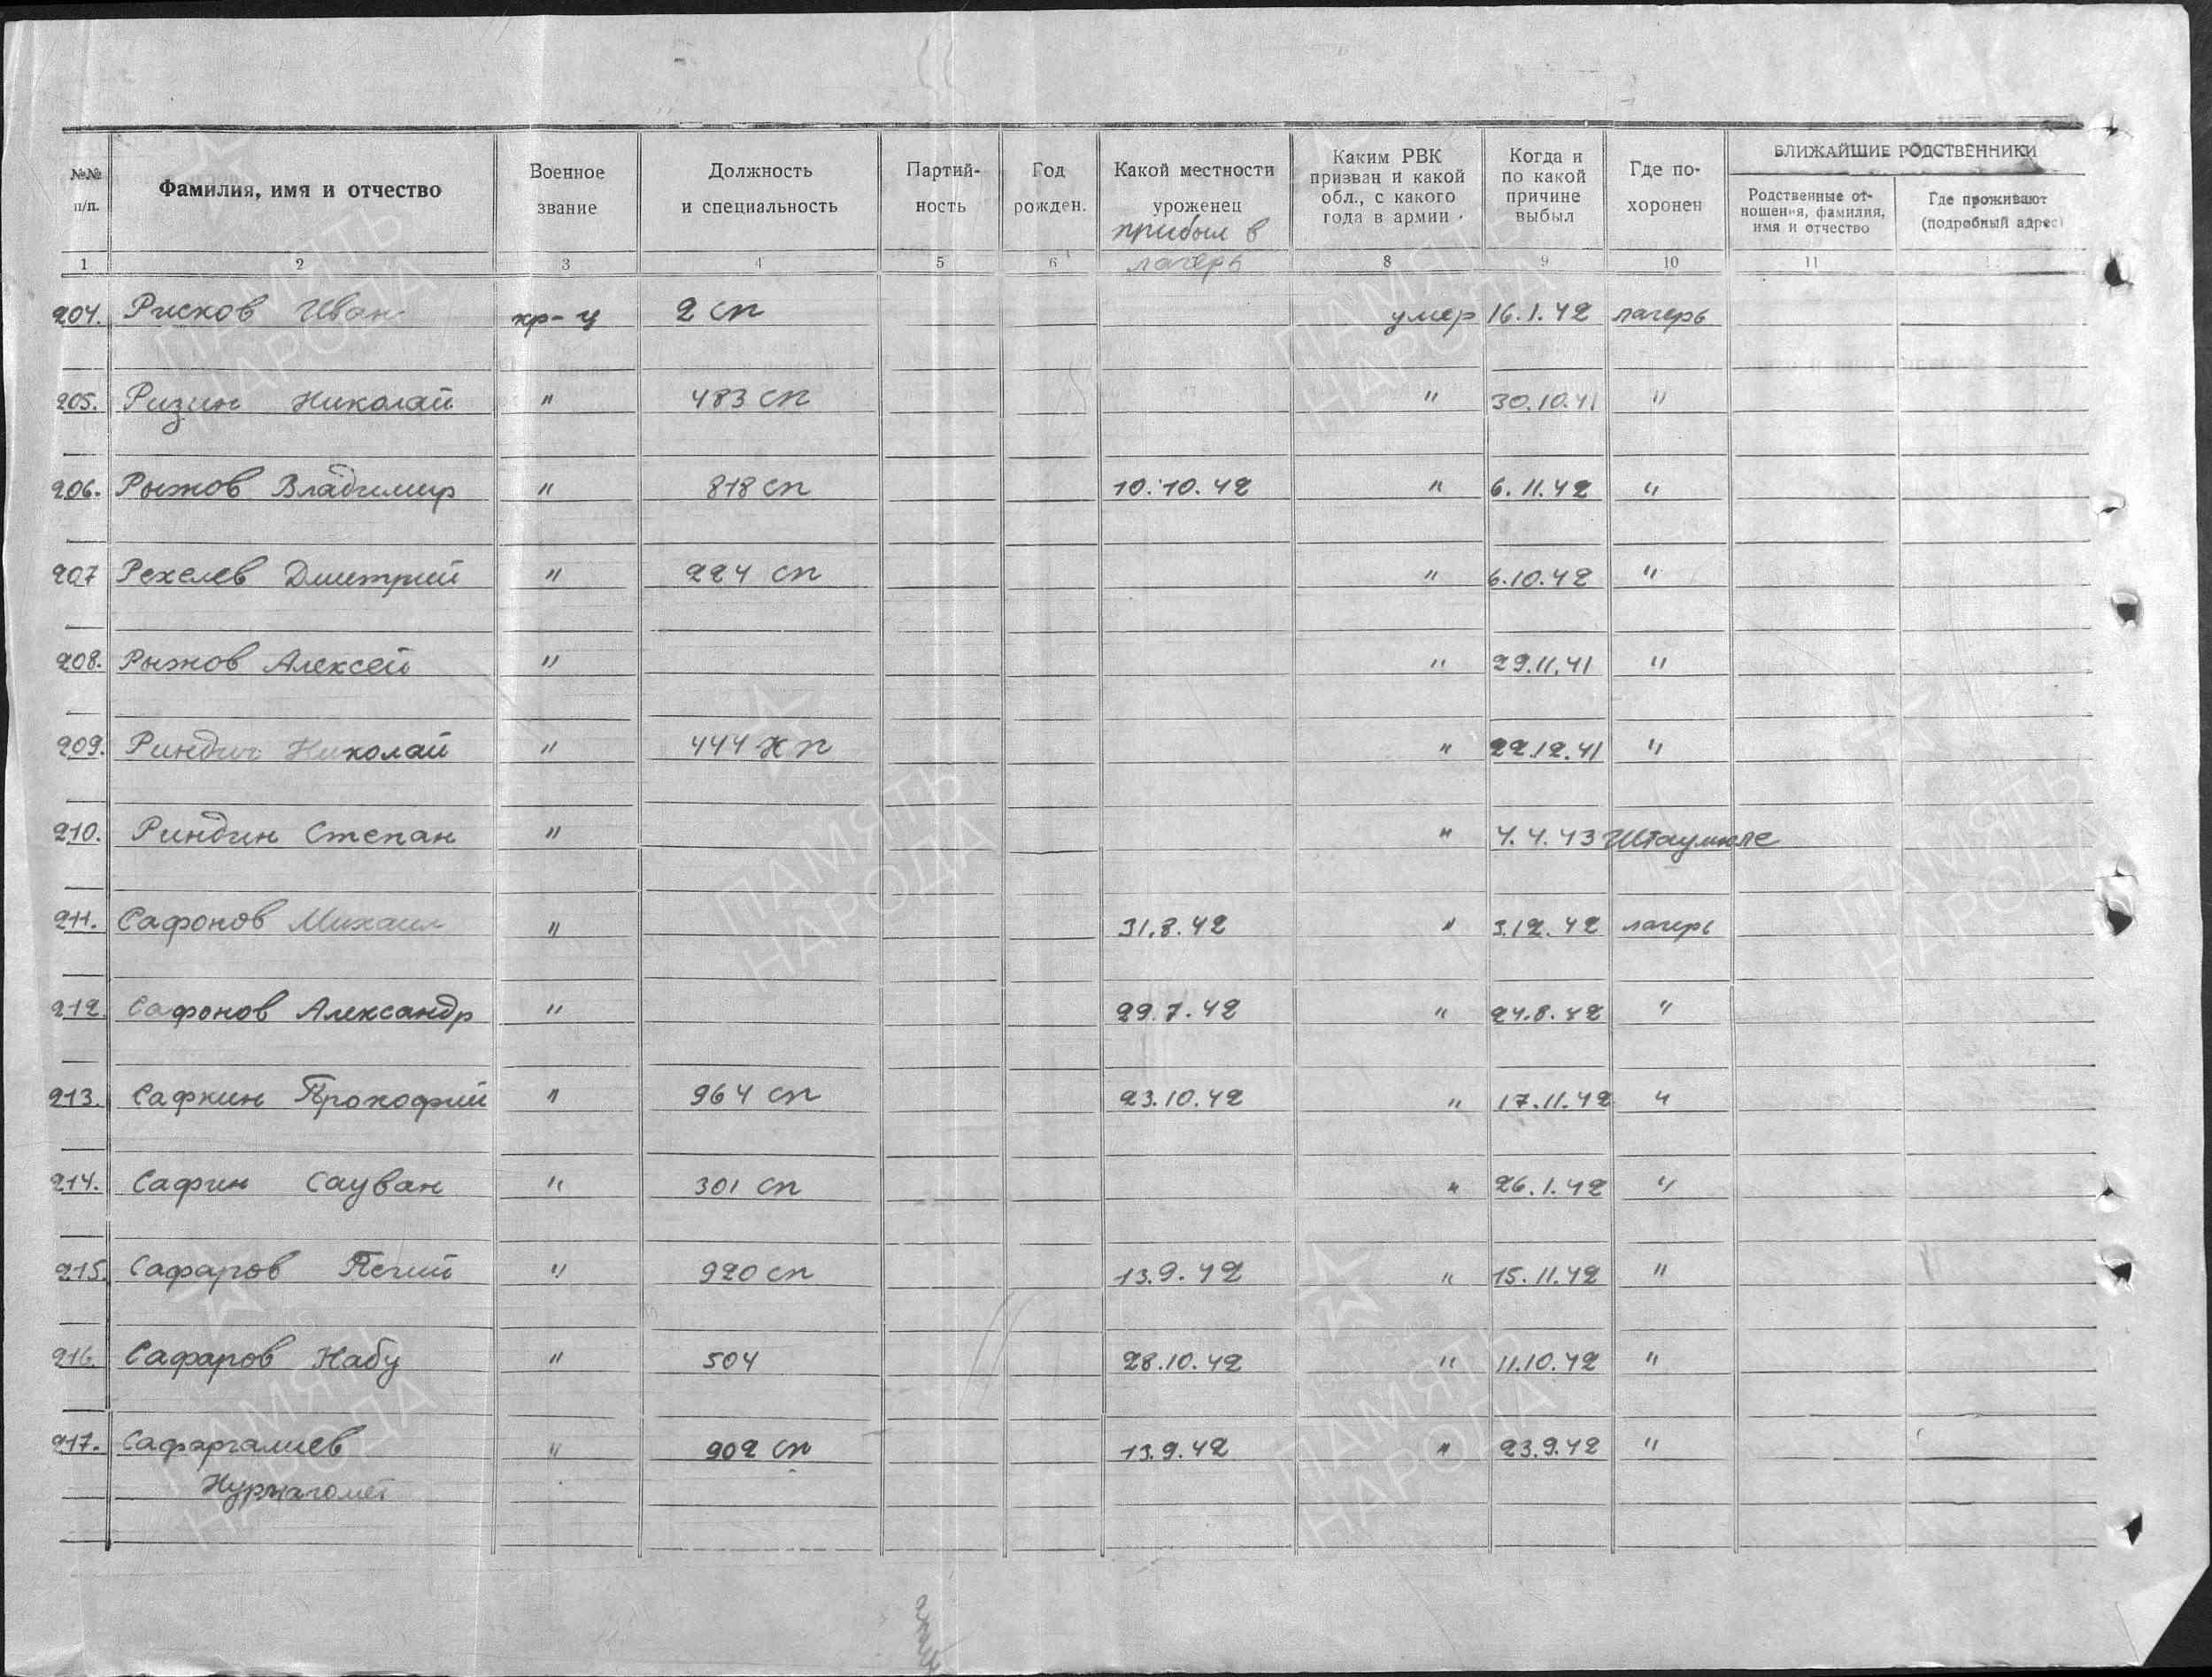 №№ п/п. Фамилия, имя и отчество Военное звание Должность и специальность Партий-ность Год рожден. Какой местности уроженец Каким РВК призван и какой обл., с какого года в армии Когда и по какой причине выбыл Где по-хоронен БЛИЖАЙШИЕ РОДСТВЕННИКИ
Родственные от-ношения, фамилия, имя и отчество Где проживают (подробный адрес)
прибыл в
лагерь
1 2 3 4 5 6 8 9 10 11
204. Рисков Иван кр-ц 2 сп умер 16.1.42 лагерь
205. Ризин Николай " 483 сп " 30.10.41 "
206. Рыжов Владимир " 818 сп 10.10.42 " 6.11.42 "
207 Рехелев Дмитрий " 224 сп " 6.10.42 "
208. Рыжов Алексей " " 29.11.41 "
209. Риндич Николай " 444 " 22.12.41 "
210. Риндин Степан " " 4.4.43 Штаумюле
211. Сафонов Михаил " 31.8.42 " 3.12.42 лагерь
212. Сафонов Александр " 29.7.42 " 24.8.42 "
213. Сафкин Прокофий " 964 сп 23.10.42 " 17.11.42 "
214. Сафин Сауван " 301 сп " 26.1.42 "
215. Сафаров " 920 сп 13.9.42 " 15.11.42 "
216. Сафаров Набу " 504 28.10.42 " 11.10.42 "
217. Сафаргалиев " 902 сп 13.9.42 " 23.9.42 "
Нурмагомет
ПАМЯТЬ НАРОДА
ПАМЯТЬ НАРОДА
ПАМЯТЬ НАРОДА
ПАМЯТЬ НАРОДА
ПАМЯТЬ НАРОДА
ПАМЯТЬ НАРОДА